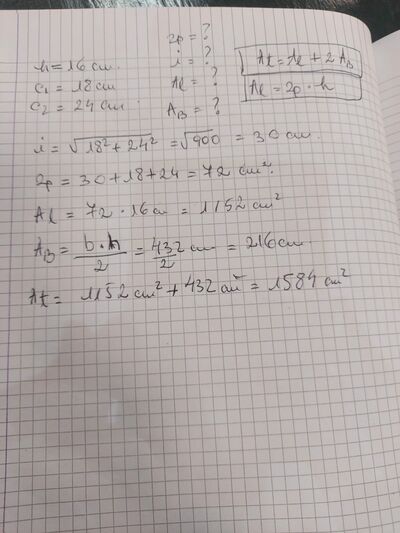 h = 16 cm
c₁ = 18 cm
c₂ = 24 cm
2p = ?
i = ?
Al = ?
A_B = ?
At = Al + 2 A_B
Al = 2p · h
i = √18² + 24² = √900 = 30 cm.
2p = 30 + 18 + 24 = 72 cm².
Al = 72 · 16 cm = 1152 cm²
A_B = b · h / 2 = 432 cm / 2 = 216 cm.
At = 1152 cm² + 432 cm² = 1584 cm²